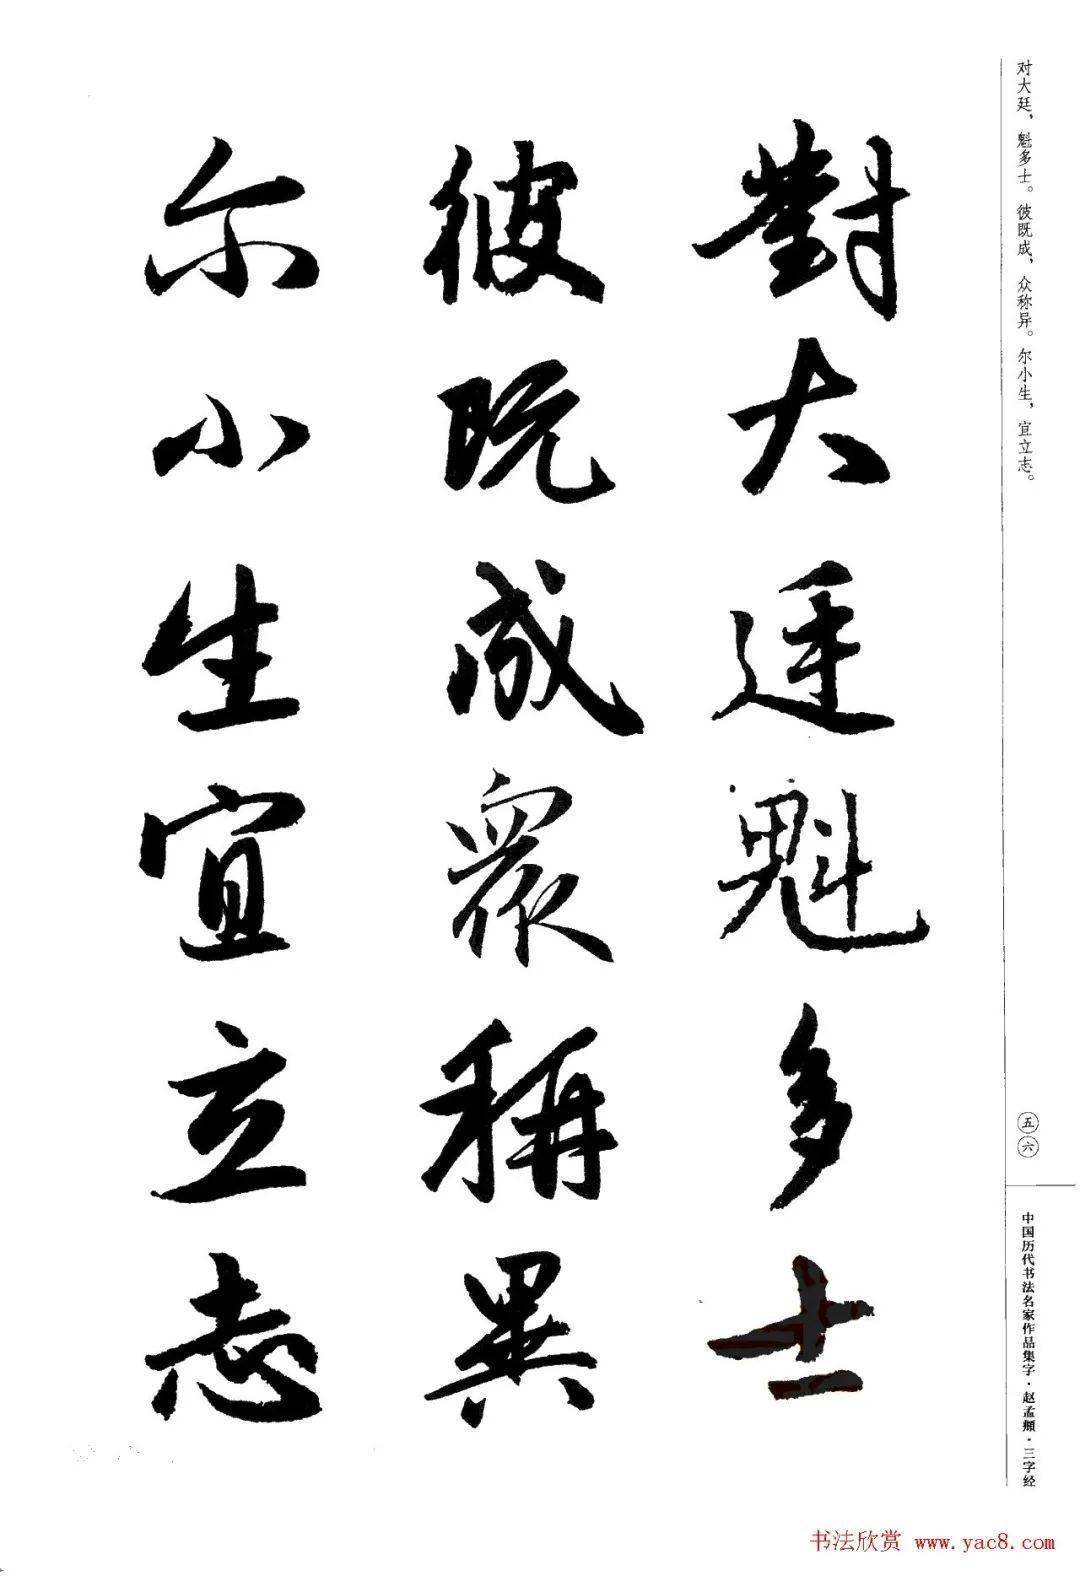 对大廷，魁多士。彼既成，众称异。尔小生，宜立志。
對大廷魁多士
彼既成衆稱異
尔小生宜立志
五六
中国历代书法名家作品集字·赵孟頫·三字经
书法欣赏 www.yac8.com